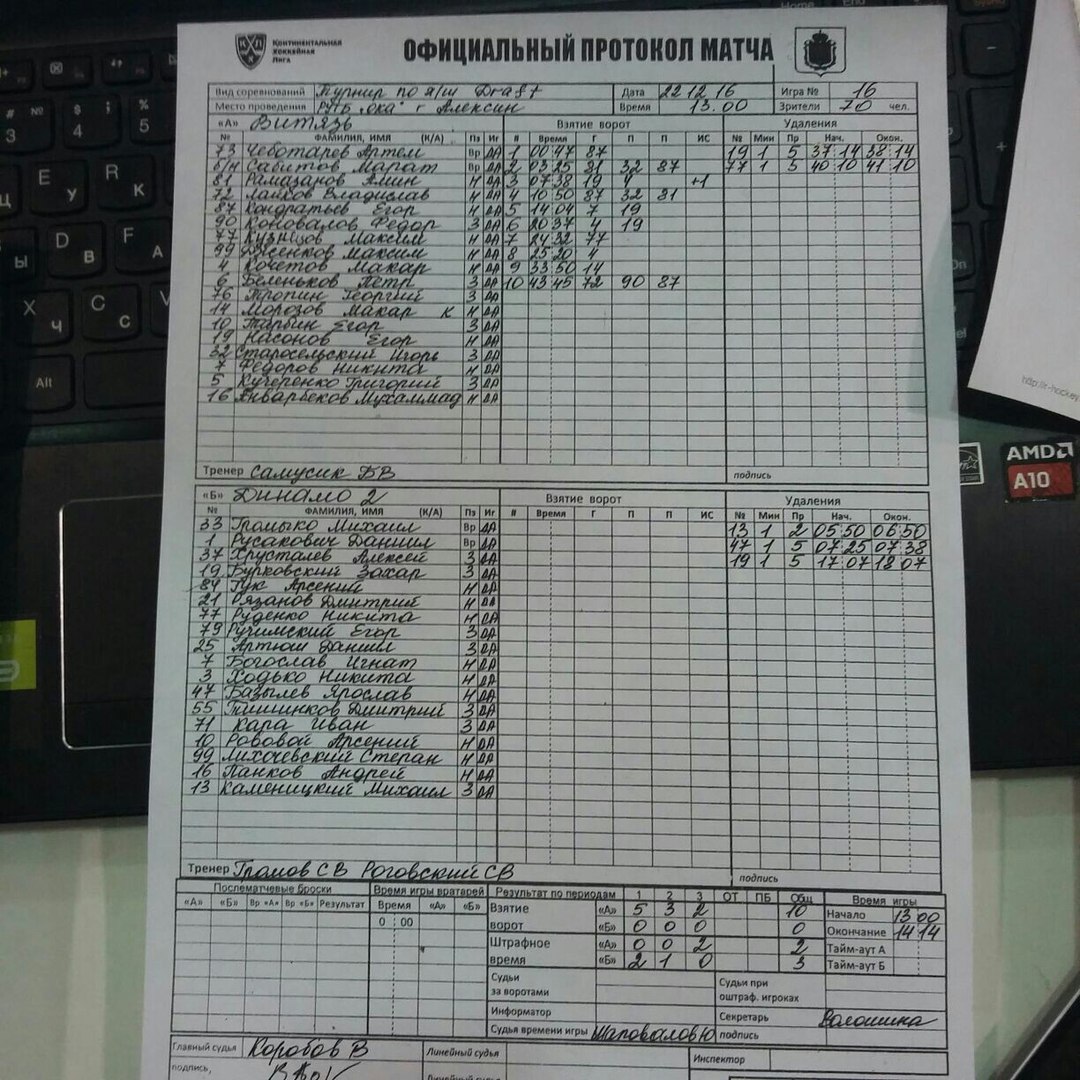 Континентальная
хоккейная
Лига
ОФИЦИАЛЬНЫЙ ПРОТОКОЛ МАТЧА
Вид соревнований Турнир по я/ш Draft Дата 22 12 16 Игра № 16
Место проведения РУТБ "Ока" г Алексин Время 13.00 Зрители 70 чел.
«А» Витязь Взятие ворот Удаления
№ ФАМИЛИЯ, ИМЯ (К/А) Пз Иг # Время Г П П ИС № Мин Пр Нач. Окон.
73 Чеботарев Артем Вр ДА 1 00 47 87 19 1 5 37 14 38 14
б/н Сабитов Марат Вр ДА 2 03 25 31 32 87 77 1 5 40 10 41 10
81 Рамазанов Амин Н ДА 3 07 38 19 4 +1
72 Лайков Владислав Н ДА 4 10 50 87 32 31
87 Кондратьев Егор Н ДА 5 14 04 7 19
90 Коновалов Федор З ДА 6 20 37 4 19
77 Кузнецов Максим Н ДА 7 24 32 77
99 Максим Н ДА 8 25 20 4
4 Кочетов Макар Н ДА 9 33 50 14
6 Беленьков Петр З ДА 10 43 45 72 90 87
76 Тропин Георгий З ДА
14 Морозов Макар К Н ДА
10 Тарбин Егор З ДА
19 Насонов Егор Н ДА
32 Старосельский Игорь З ДА
7 Федоров Никита Н ДА
5 Кучеренко Григорий З ДА
16 Январбеков Мухаммад Н ДА
Тренер Самусик ДВ подпись
«Б» Динамо 2 Взятие ворот Удаления
№ ФАМИЛИЯ, ИМЯ (К/А) Пз Иг # Время Г П П ИС № Мин Пр Нач. Окон.
33 Громыко Михаил Вр ДА 13 1 2 05 50 06 50
1 Русакович Даниил Вр ДА 47 1 5 07 25 07 38
37 Хрусталев Алексей З ДА 19 1 5 17 07 18 07
19 Бурковский Захар З ДА
84 Гук Арсений Н ДА
21 Рязанов Дмитрий Н ДА
77 Руденко Никита Н ДА
79 Ручимский Егор З ДА
25 Артюш Даниил З ДА
7 Богослав Игнат Н ДА
3 Ходько Никита Н ДА
47 Базылев Ярослав Н ДА
55 Тишинков Дмитрий З ДА
71 Кара Иван З ДА
10 Рововой Арсений Н ДА
99 Лихочевский Степан Н ДА
16 Панков Андрей Н ДА
13 Каменицкий Михаил З ДА
Тренер Громов СВ Роговский СВ подпись
Послематчевые броски Время игры вратарей Результат по периодам 1 2 3 ОТ ПБ Общ Время игры
«А» «Б» Вр «А» Вр «Б» Результат Время «А» «Б» Взятие «А» 5 3 2 10 Начало 13 00
0 : 00 ворот «Б» 0 0 0 0 Окончание 14 14
Штрафное «А» 0 0 2 2 Тайм-аут А
время «Б» 2 1 0 3 Тайм-аут Б
Судьи Судьи при
за воротами оштраф. игроках
Информатор Секретарь Волошина
Судья времени игры Шаповалов Ю подпись
Главный судья Коробов В Линейный судья Инспектор
подпись,
Линейный судья
AMD
A10